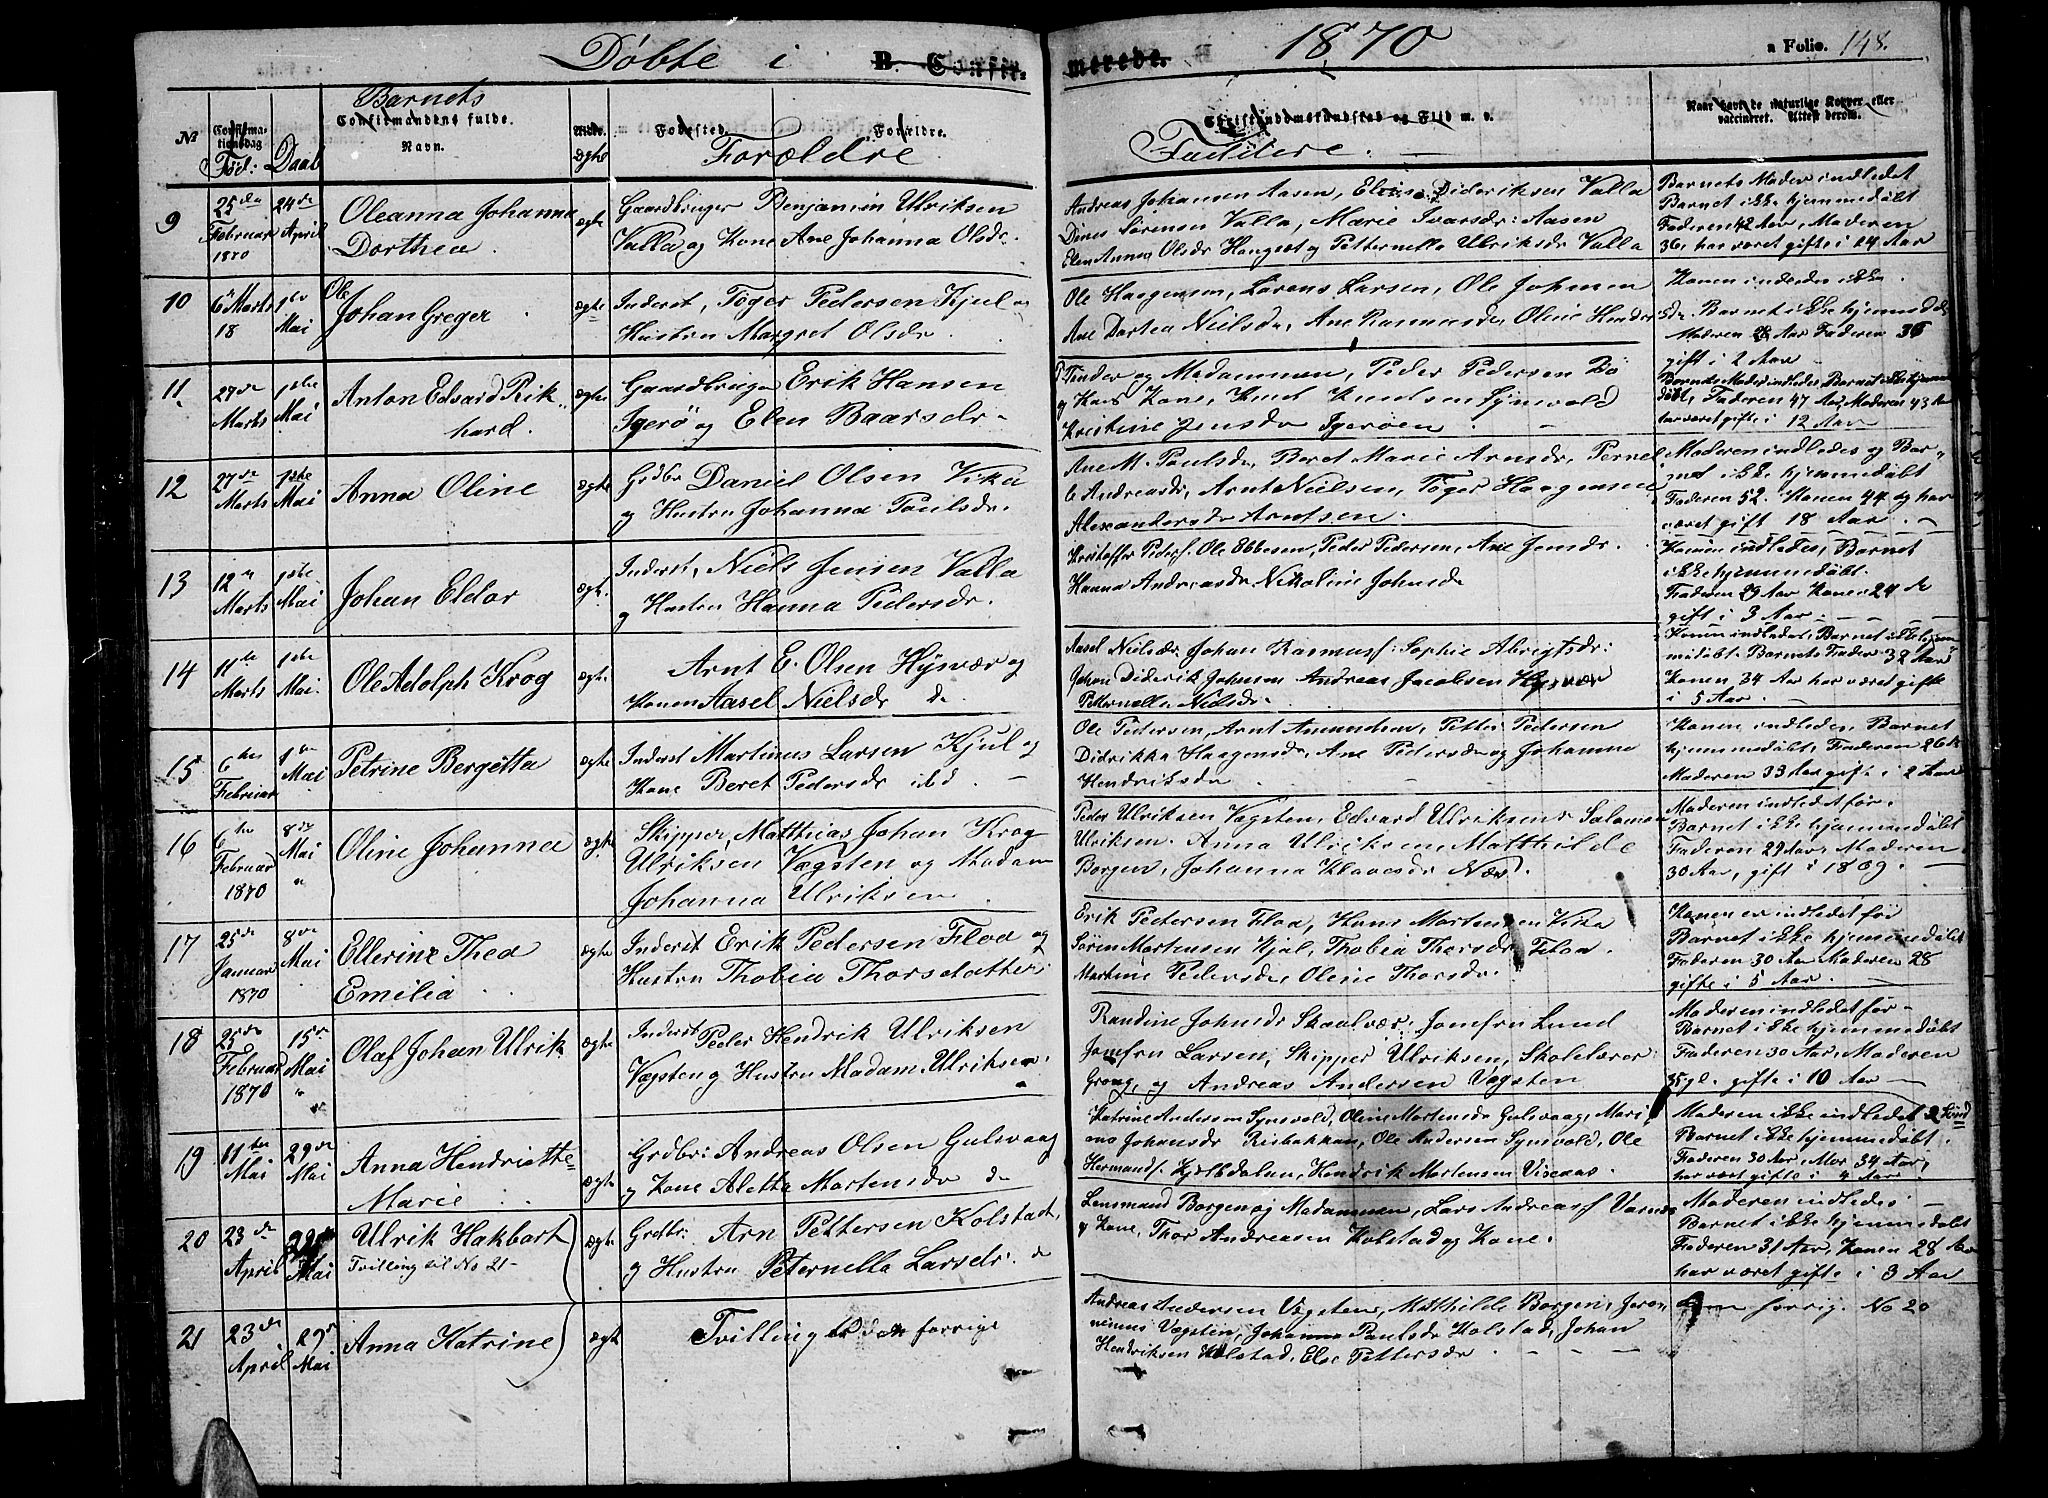 Døbte i B. Confirmerede. 1870 a Folio. 148.
No Confirmationsdag Barnets Confirmandens fulde Navn. Alder. Fødested. Forældre. Christendomskundskab og Flid m. v. Naar havt de naturlige Kopper eller vaccineret. Attest derom.
Fød: Daab Ægte Forældre Faddere.
9 25de Februar 1870 24de April Oleanna Johanna Dorthea ægte
Gaardbruger Benjamin Ulriksen
Valla og Kone Ane Johanna Olsdr.
Andreas Johansen Aasen, Dideriksen Valla
Dines Sørensen Valla, Marie Ivarsdr: Aasen
Elen Anna Olsdr Haugset og Petternella Ulriksdr Valla
Barnets Moder indledet
Barnet ikke hjemmedøbt
Faderen 42 Aar, Moderen
36, har været gifte i 24 Aar
10 6te Marts 18 1ste Mai Ole Johan Greger ægte
Inderst, Tøger Pedersen Kjul og
Hustru Margret Olsdr.
Ole Haagensen, Lorens Larsen, Ole Johnsen
Ane Dortea Nielsdr, Ane Rasmusdr, Oline Hender
Konen indledes ikke
Barnet ikke hjemmedøbt
Moderen 28 Aar Faderen 36
gift i 2 Aar
11. 27de Marts 1ste Mai Anton Edvard Rikhard. ægte
Gaardbruger Erik Hansen
Igerø og Elen Baarsdr.
Tender og Madammen, Peder Pedersen Bø
og Hans Kone, Knut Knutsen Synsvold
Kristine Jensdr Igerøen.
Barnets Moder indledes, Barnet ikke hjemmedøbt, Faderen 47 Aar, Moderen 43 Aar
har været gifte i 12 Aar
12 27de Marts 1ste Mai Anna Oline ægte
Grdbr Daniel Olsen Vika
og Hustru Johanna Paulsdr.
Ane M. Paulsdr, Beret Marie Arnsdr, Pernel
Andreasdr, Arnt Nielsen, Tøger Haagensen
Alexandersdr Arntsen.
Moderen indledes og Barnet ikke hjemmedøbt
Faderen 52. Konen 44 og har
været gift 18 Aar.
13 12te Marts 1ste Mai Johan Eldor ægte
Inderst, Niels Jensen Valla
og Hustru Hanna Pedersdr.
Kristoffer Peders. Ole Ebbesen, Peder Pedersen, Ane Jensdr.
Hanna Andreasdr Nikoline Johnsdr
Konen indledes, Barnet
ikke hjemmedøbt.
Faderen 29 Aar Konen 24 Aar
gift i 3 Aar
14 11te Marts 1ste Mai Ole Adolph Krog ægte
Arnt E. Olsen Hysvær og
Konen Aasel Nielsdr do
Aasel Nielsdr Johan Rasmus: Sophie Albrigtsdr:
Johan Diderik Johnsen Andreas Jacobsen Hysvær
Petternella Nielsdr.
Konen indledet, Barnet ikke hjemmedøbt. Barnets Fader 32 Aar
Konen 34 Aar har været gifte
i 5 Aar
15 6te Februar 1ste Mai Petrine Bergetta ægte
Inderst Martinus Larsen Kjul og
Kone Beret Pedersdr ibid
Ole Pedersen, Arnt Amundsen, Petter Pedersen
Didrikka Haagensdr, Ane Pedersdr og Johanna
Hendriksdr
Konen indledes, Barnet
hjemmedøbt, Faderen 26
Moderen 33 Aar gift i 2 Aar
16 6te Februar 1870 8de Mai Oline Johanna ægte
Skipper, Matthias Johan Krog
Ulriksen Vægsten og Madam
Johanna Ulriksen
Peder Ulriksen Vægsten, Edvard Ulriksens Salamon
Ulriksen. Anna Ulriksen Matthilde
Borgen, Johanna Klavesdr
Moderen indledet før.
Barnet ikke hjemmedøbt
Faderen 29 Aar, Moderen
30 Aar, gift i 1869.
17 25de Januar 1870 8de Mai Ellerine Thea Emilia. ægte
Inderst Erik Pedersen Floa og
Hustru Thobia Thorsdatter
Erik Pedersen Floa, Hans Martensen Vika
Søren Martensen Kjul, Thobia Thorsdr Floa.
Martine Pedersdr, Oline Thorsdr.
Konen er indledet før
Barnet ikke hjemmedøbt
Faderen 30 Aar Moderen 28
gifte i 5 Aar
18 25de Februar 1870 15de Mai Olaf Johan Ulrik ægte
Inderst Peder Hendrik Ulriksen
Vægsten og Hustru Madam Ulriksen
Randine Johnsdr Skaalvær, Jomfru Lund
Jomfru Larsen, Skipper Ulriksen, Skolelærer
Grong, og Andreas Andersen Vægsten
Moderen indledet før
Barnet ikke hjemmedøbt
Faderen 30 Aar, Moderen
35 gl. gifte i 10 Aar
19 11te Mai 29de Mai Anna Henriette Marie ægte
Grdbr: Andreas Olsen Gulsvaag
og Kone Aletta Mortensdr do
Katrine Andersen Synsvold, Oline Mortensdr Gulsvaag, Mari
Johansdr Risbakken, Ole Andersen Synsvold, Ole
Hermands. Hjelbdalen, Hendrik Mortensen Visenas.
Moderen ikke indledet
Barnet ikke hjemmedøbt.
Faderen 30 Aar, Mor 34 Aar,
har været gifte i 4 Aar
20 23de April 29de Mai Ulrik Hakbart Tvilling til No 21 ægte
Grdbr: Arn Pettersen Kolstad,
og Hustru Peternella Larsdr. do
Lensmand Borgen og Madammen, Lars Andreas
og Kone, Thor Andreasen Kolstad og Kone.
Moderen indledes
Barnet ikke hjemmedøbt
Faderen 31 Aar, Konen 28 Aar
har været gifte i 3 Aar
21 23de April 29de Mai Anna Katrine ægte
Tvilling forrige
Andreas Andersen Vægsten, Matthilde Borgen, Jeronimus Vægsten, Johanna Paulsdr Kolstad, Johan
Hendriksen Kolstad, Else Pettersdr
forrig. No 20